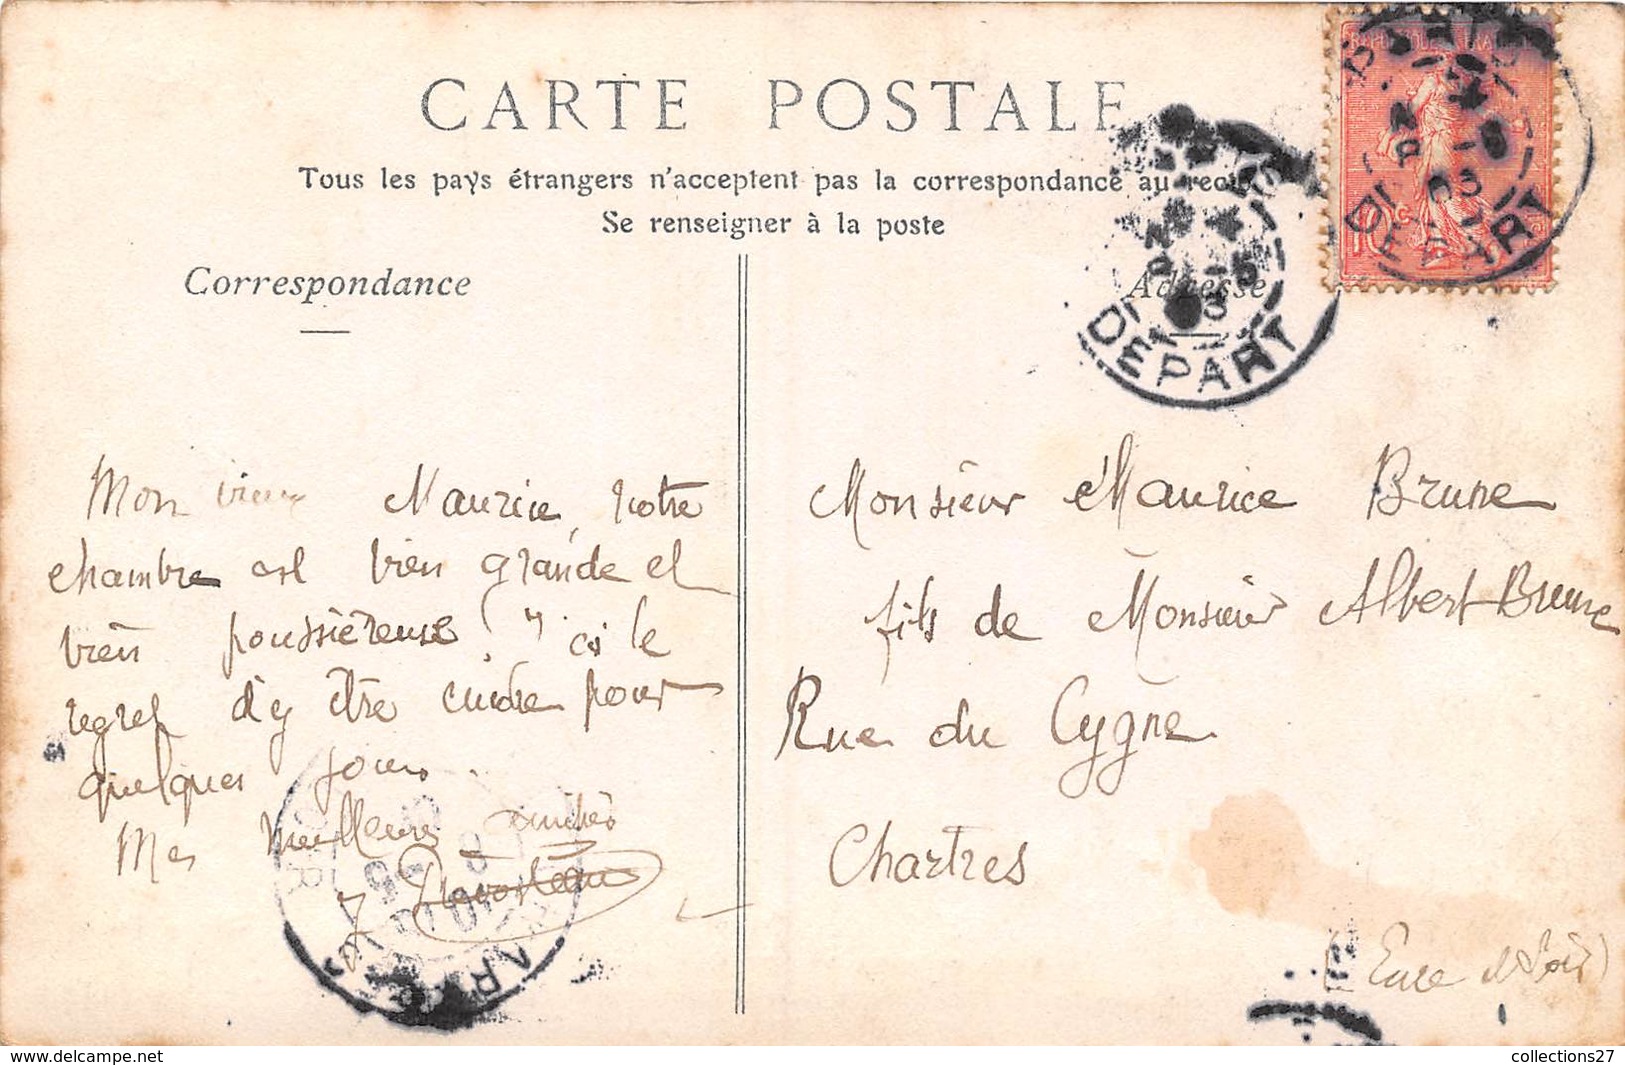 CARTE POSTALE
Tous les pays étrangers n'acceptent pas la correspondance au recto
Se renseigner à la poste
Correspondance
Adresse
DEPART
DEPART
10c
Mon vieux Maurice, notre
chambre est bien grande et
bien poussièreuse! ici le
regret d'y être pour
quelques jours.
Mes meilleures amitiés
Monsieur Maurice Brune
fils de Monsieur Albert Brune
Rue du Cygne
Chartres
(Eure et Loir)
collections27